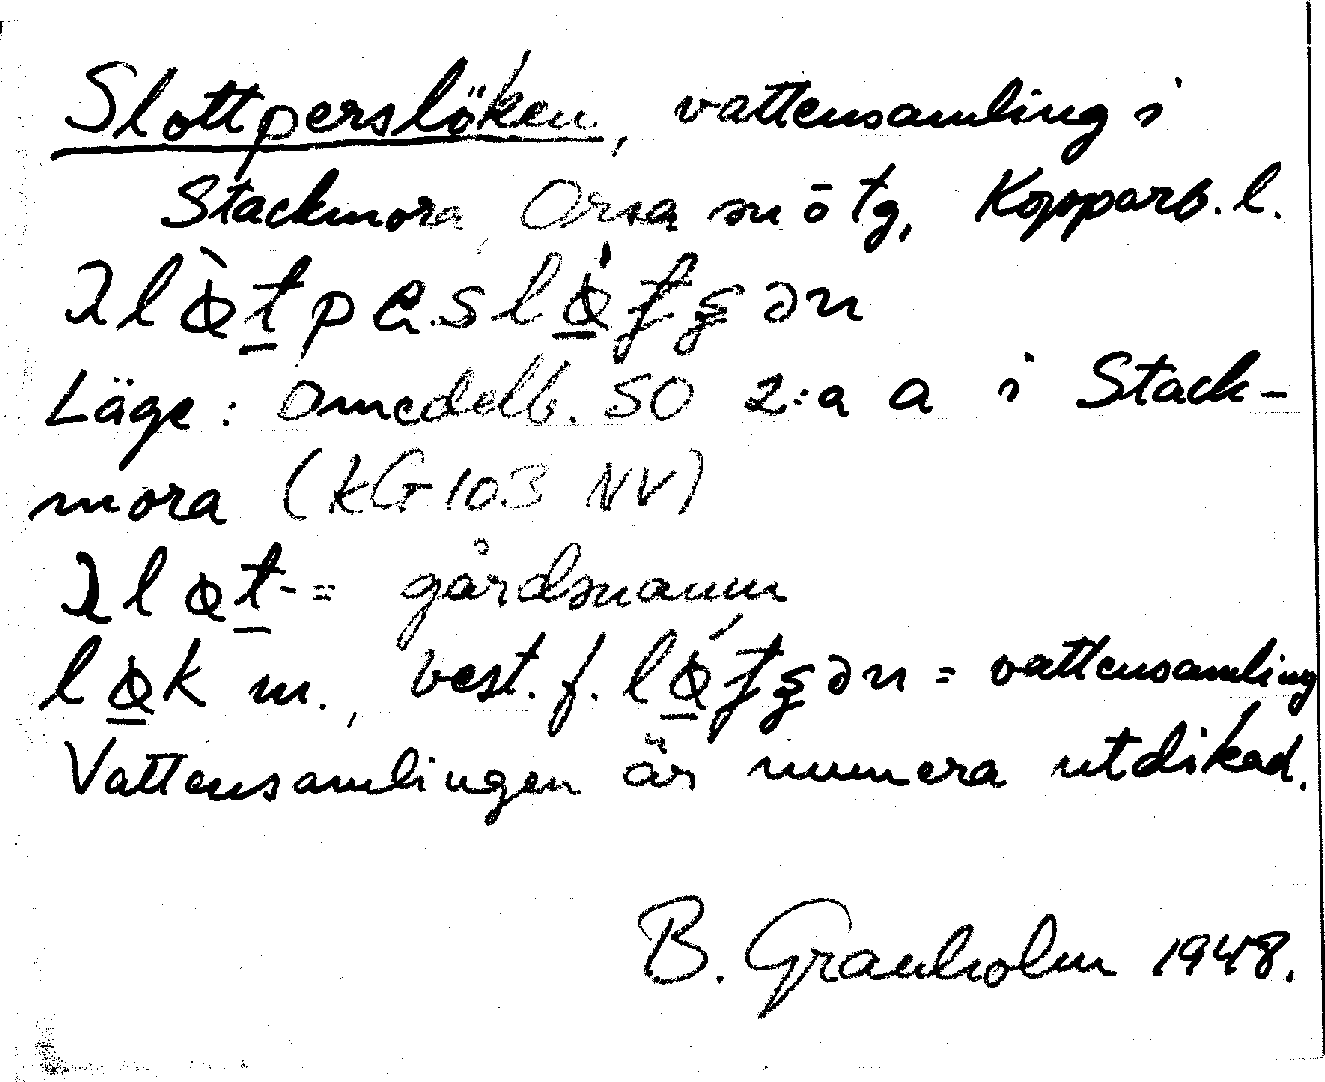 Slottperslöken, vattensamling i
Stackmora, Orsa sn ō tg, Kopparb. l.
Läge: Omedelb. SO 2:a a i Stack-
mora (KG 103 NV)
= gårdsnamn
m., best. f. = vattensamling
Vattensamlingen är numera utdikad.
B. Granholm 1948.